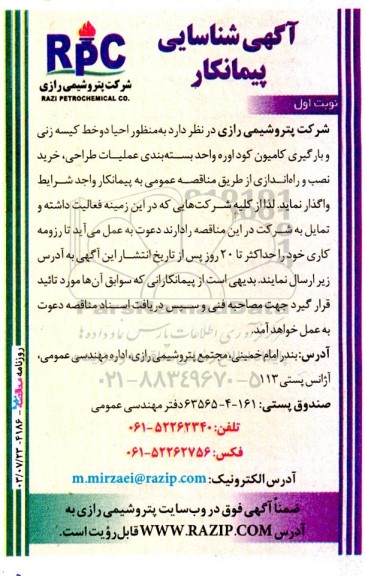 آگهی شناسایی
پیمانکار
RPC
شرکت پتروشیمی رازی
RAZI PETROCHEMICAL CO.
نوبت اول
شرکت پتروشیمی رازی در نظر دارد به‌منظور احیا دو خط کیسه زنی
و بارگیری کامیون کود اوره واحد بسته‌بندی عملیات طراحی، خرید
نصب و راه‌اندازی از طریق مناقصه عمومی به پیمانکار واجد شرایط
واگذار نماید. لذا از کلیه شرکت‌هایی که در این زمینه فعالیت داشته و
تمایل به شرکت در این مناقصه را دارند دعوت به عمل می‌آید تا رزومه
کاری خود را حداکثر تا ۲۰ روز پس از تاریخ انتشار این آگهی به آدرس
زیر ارسال نمایند. بدیهی است از پیمانکارانی که سوابق آن‌ها مورد تائید
قرار گیرد جهت مصاحبه فنی و سپس دریافت اسناد مناقصه دعوت
به عمل خواهد آمد.
آدرس: بندر امام خمینی، مجتمع پتروشیمی رازی، اداره مهندسی عمومی،
آژانس پستی ۱۱۳
۰۲۱-۸۸۳۴۹۶۷۰-۵
صندوق پستی: ۱۶۱-۴-۶۳۵۶۵ دفتر مهندسی عمومی
تلفن: ۵۲۲۶۲۳۴۰-۰۶۱
فکس: ۵۲۲۶۲۷۵۶-۰۶۱
آدرس الکترونیک: m.mirzaei@razip.com
ضمناً آگهی فوق در وب‌سایت پتروشیمی رازی به
آدرس WWW.RAZIP.COM قابل رؤیت است.
روزنامه مناقصه - ۴۱۸۶ - ۰۳/۰۷/۲۳